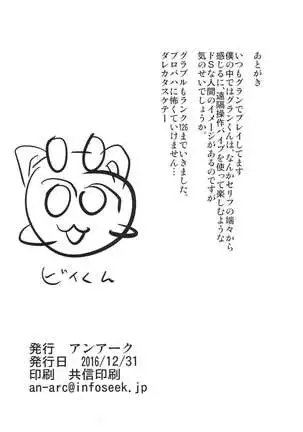 あとがき
いつもグランでプレイしてます
僕の中ではグランくんは、なんかセリフの端々から
感じるに、遠隔操作バイブを使って楽しむような
ドSな人間のイメージがあるのですが
気のせいでしょうか
グラブルもランク126までいきました。
プロバハに怖くていけません…
ダレカタスケテー
ビィくん
発行 アンアーク
発行日 2016/12/31
印刷 共信印刷
an-arc@infoseek.jp